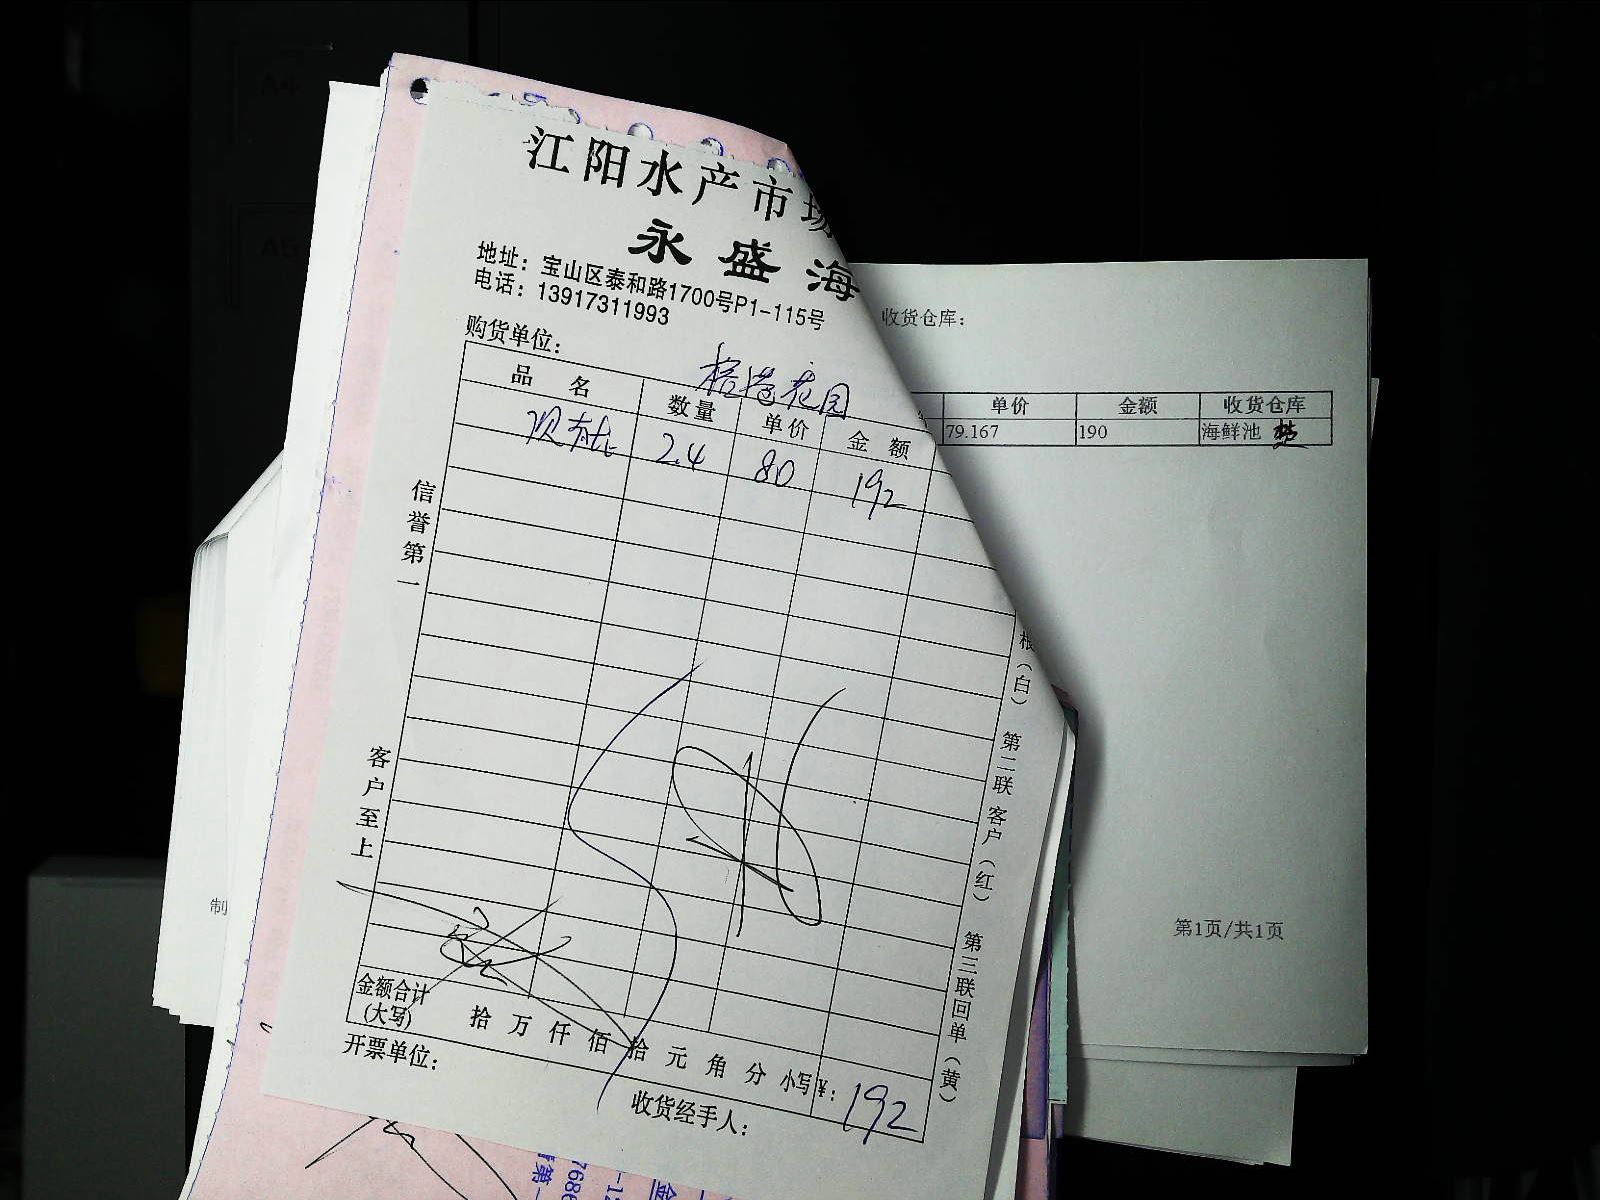 江阳水产市场
永盛海
地址：宝山区泰和路1700号P1-115号
电话：13917311993
购货单位：
花园
品名 数量 单价 金额
2.4 80 192
信誉第一
客户至上
根（白） 第二联客户（红） 第三联回单（黄）
金额合计
(大写) 拾 万 仟 佰 拾 元 角 分 小写¥： 192
开票单位：
收货经手人：
收货仓库：
单价 金额 收货仓库
79.167 190 海鲜池
第1页/共1页
制